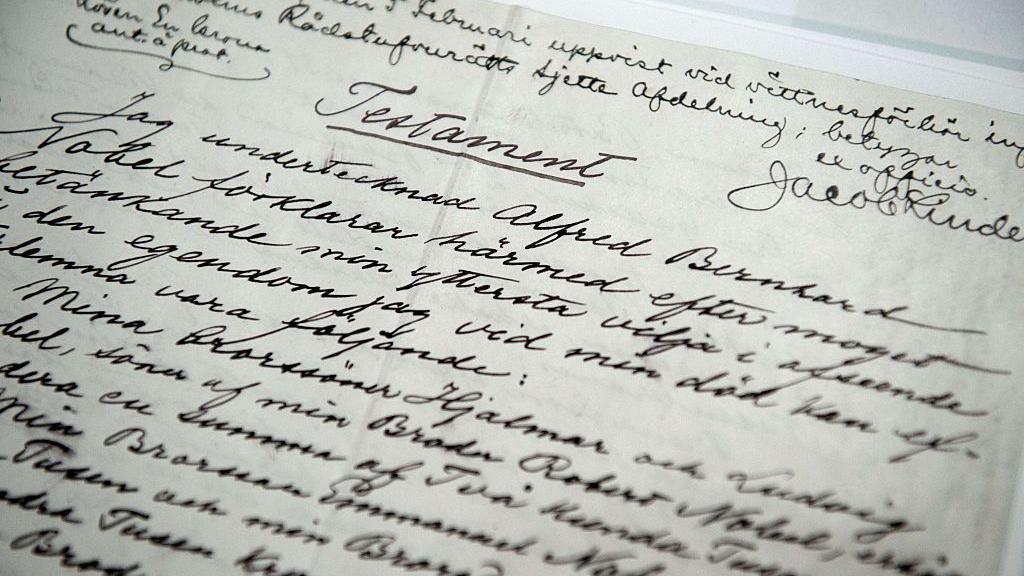 5 Februari uppvist vid vittnesförhör in
Rådstufvurätts sjette Afdelning; betygar
En krona
ex officio.
Testament
Jag undertecknad Alfred Bernhard
Nobel förklarar härmed efter moget
betänkande min yttersta vilja i afseende
å den egendom jag vid min död kan ef-
terlemna vara följande:
Mina Brorssöner Hjalmar och Ludvig
bel, söner af min Broder Robert Nobel, erhå
dera en summa af Två Hundra Tusen
Min Brorson Emmanuel Nob
Tusen och min Brors
dra Tusen Kro
Brod